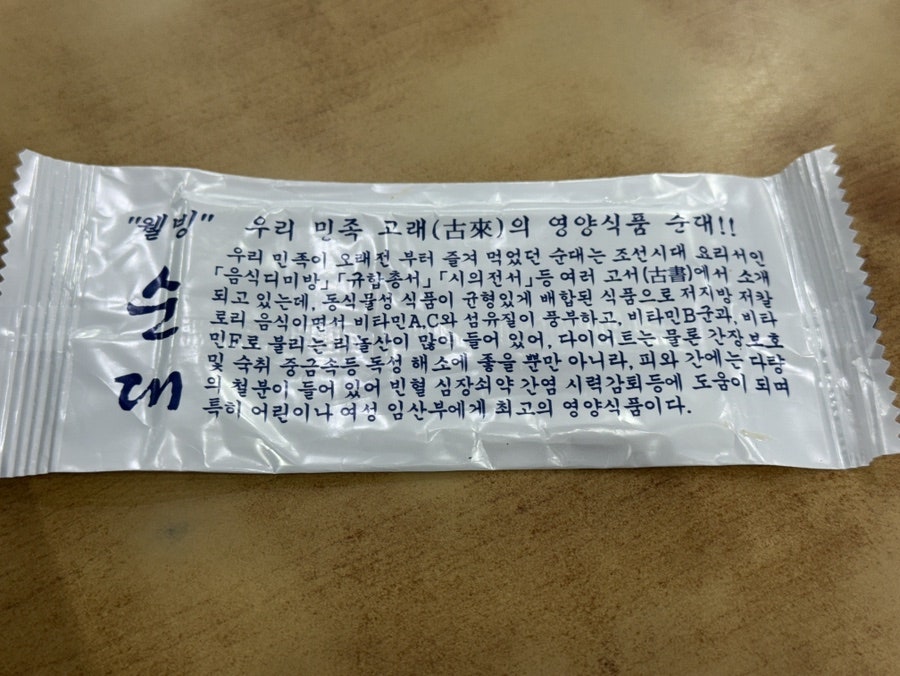 "웰빙"
순
대
우리 민족 고래(古來)의 영양식품 순대!!
우리 민족이 오래전 부터 즐겨 먹었던 순대는 조선시대 요리서인
「음식디미방」「규합총서」「시의전서」등 여러 고서(古書)에서 소개
되고 있는데, 동식물성 식품이 균형있게 배합된 식품으로 저지방 저칼
로리 음식이면서 비타민A,C와 섬유질이 풍부하고, 비타민B군과, 비타
민F로 불리는 리놀산이 많이 들어 있어, 다이어트는 물론 간장보호
및 숙취 중금속등 독성 해소에 좋을 뿐만 아니라, 피와 간에는 다량
의 철분이 들어 있어 빈혈 심장쇠약 간염 시력감퇴등에 도움이 되며
특히 어린이나 여성 임산부에게 최고의 영양식품이다.